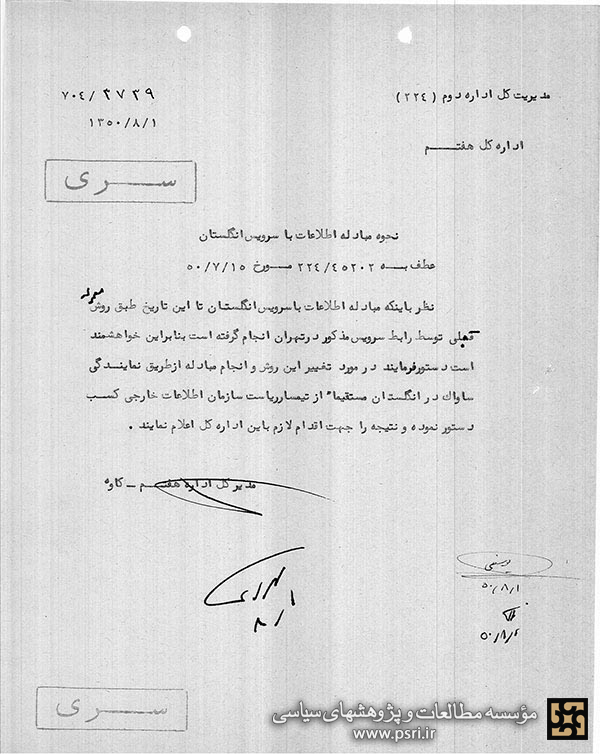 مدیریت کل اداره دوم (۲۲٤)
۷۰٤/۳۷۳۹
۱۳۵۰/۸/۱
اداره کل هفتــــم
ســـری
نحوه مبادله اطلاعات با سرویس انگلستان
عطف بـه ۲۲٤/٤۵۲۰۲ مــورخ ۵۰/۷/۱۵
نظر باینکه مبادله اطلاعات با سرویس انگلستان تا این تاریخ طبق روش معموله
قبلی توسط رابط سرویس مذکور در تهران انجام گرفته است بنابراین خواهشمند
است دستور فرمایند در مورد تغییر این روش و انجام مبادله از طریق نماینـدگی
ساواک در انگلستان مستقیما" از تیمسار ریاست سازمان اطلاعات خارجی کسب
دستور نموده و نتیجه را جهت اقدام لازم باین اداره کل اعلام نمایند .
مدیر کل اداره هفتــم - کاوه
۸/۱
یوسفی
۵۰/۸/۱
۵۰/۸/٤
ســـری
مؤسسه مطالعات و پژوهشهای سیاسی
www.psri.ir